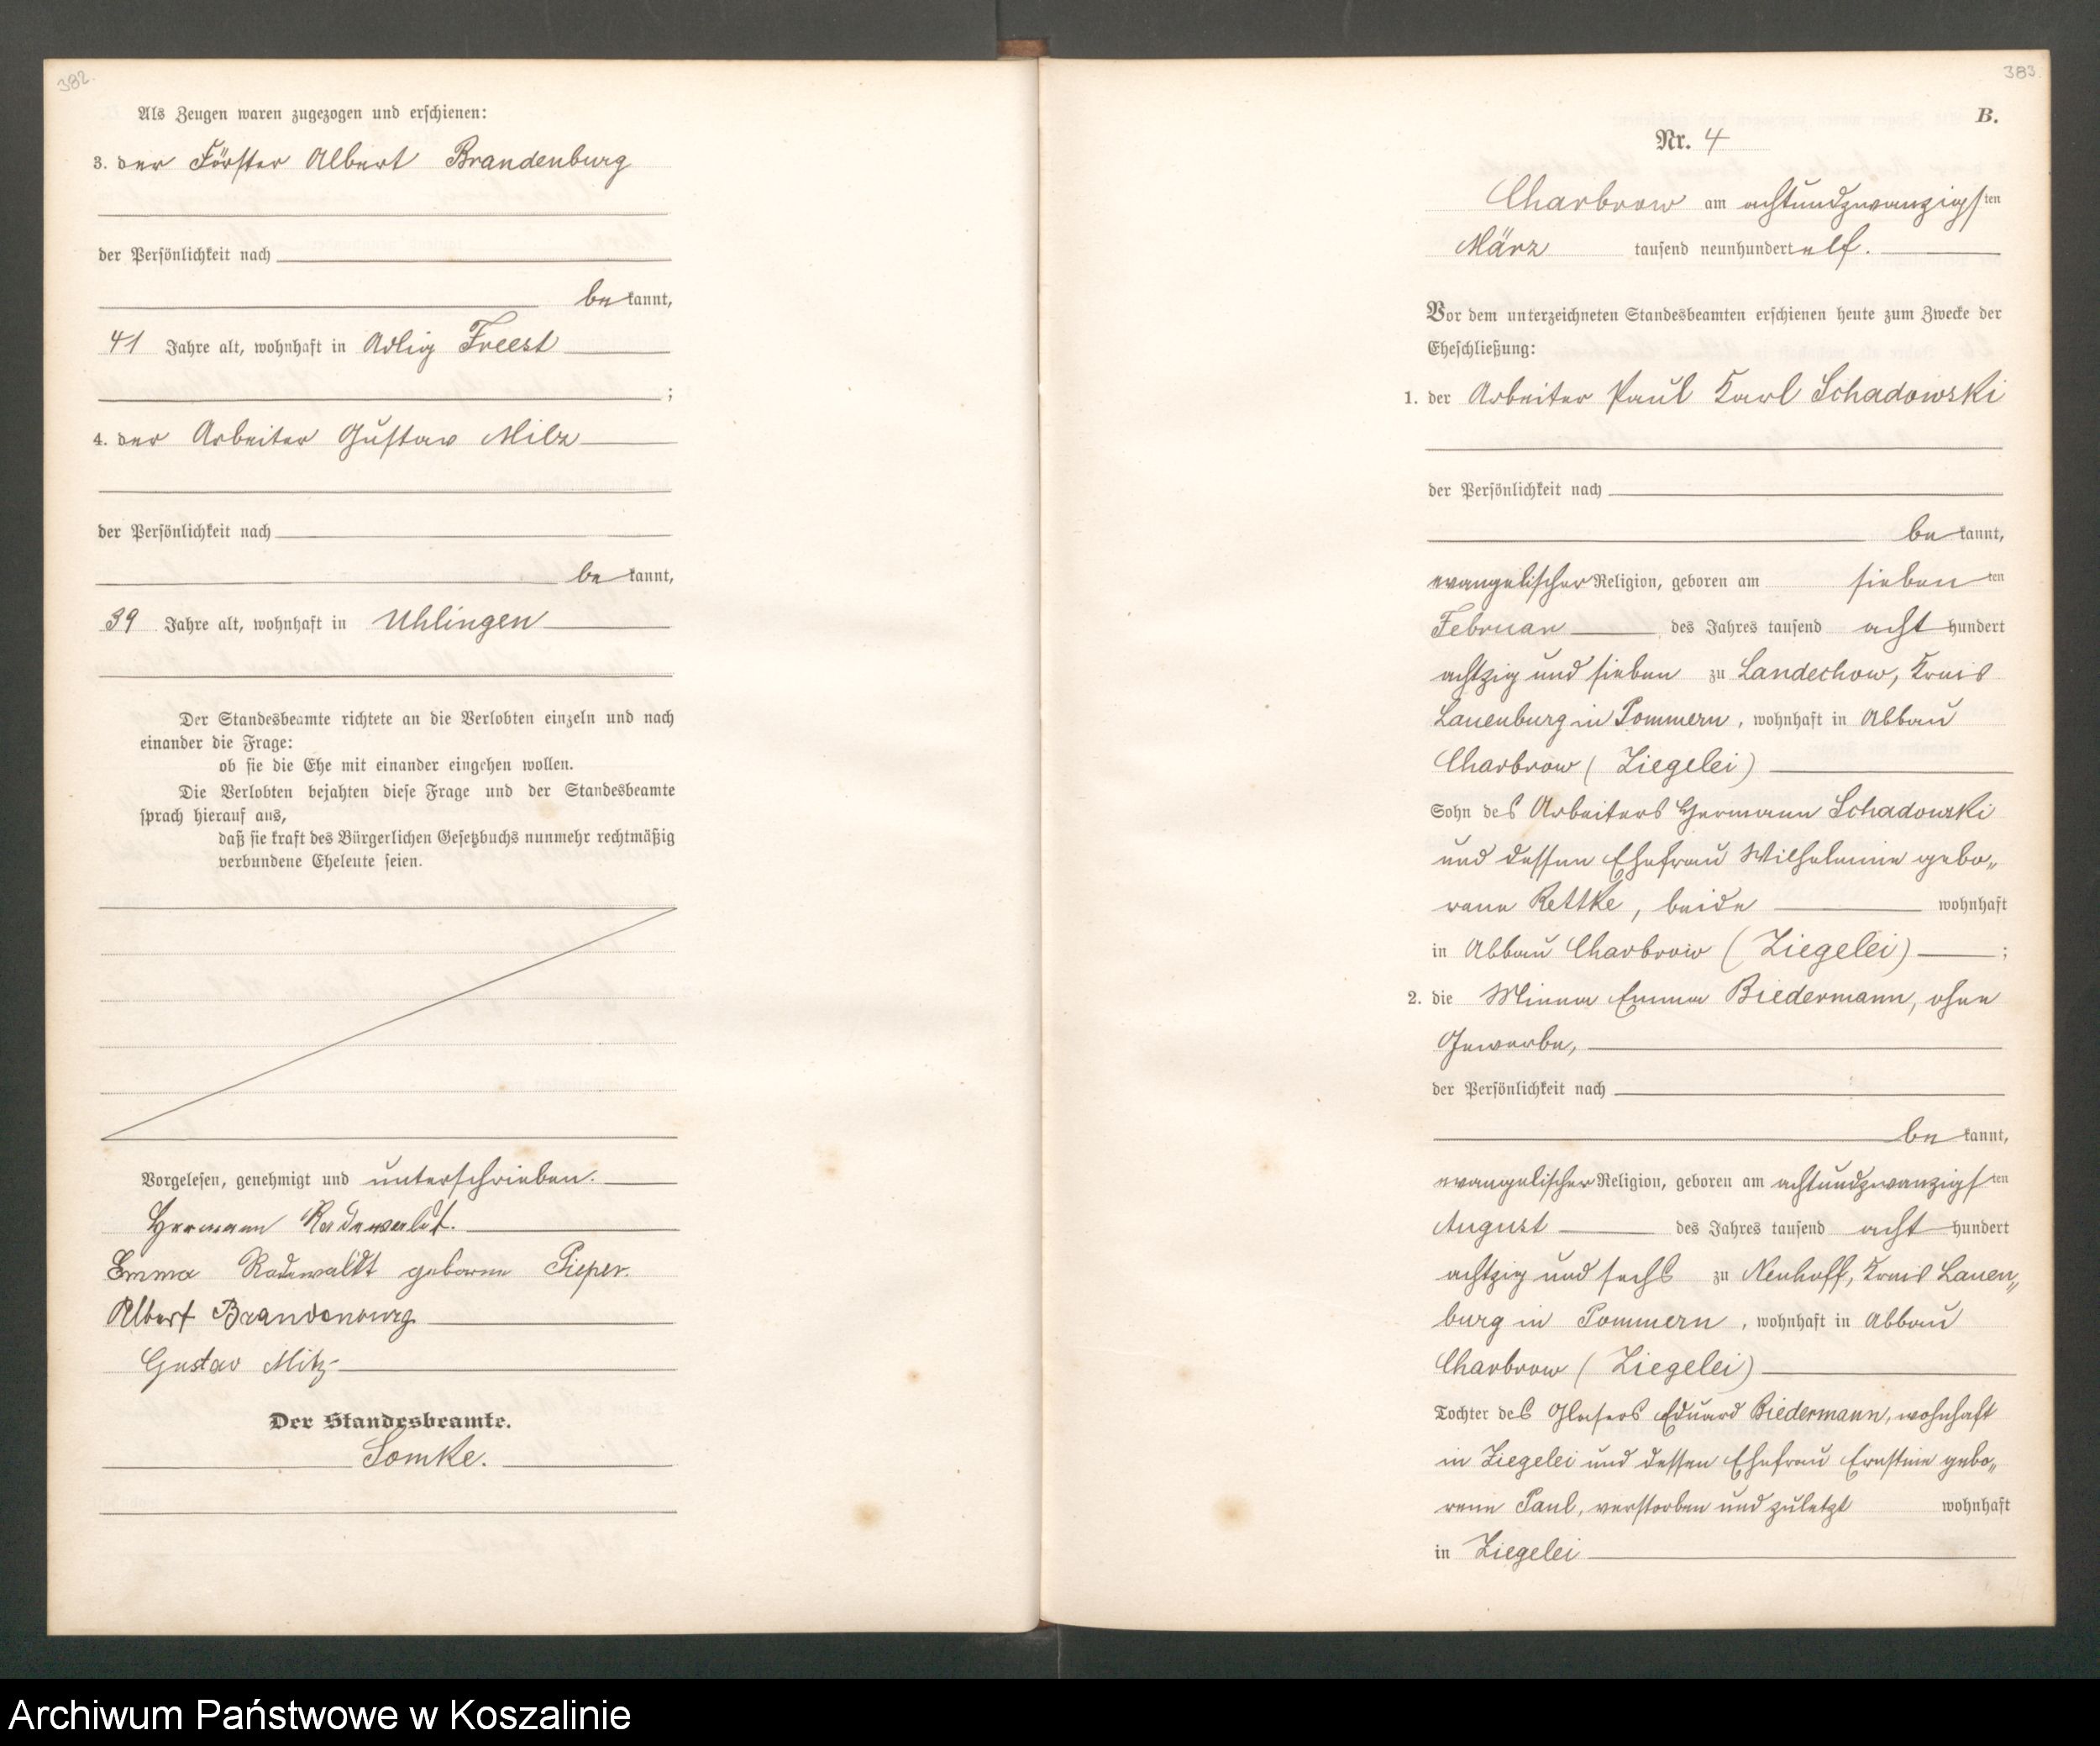 382.
Als Zeugen waren zugezogen und erschienen:
3. der Förster Albert Brandenburg
der Persönlichkeit nach
be kannt,
41 Jahre alt, wohnhaft in Adlig Freest
;
4. der Arbeiter Gustav Milz
der Persönlichkeit nach
be kannt,
39 Jahre alt, wohnhaft in Uhlingen
Der Standesbeamte richtete an die Verlobten einzeln und nach
einander die Frage:
ob sie die Ehe mit einander eingehen wollen.
Die Verlobten bejahten diese Frage und der Standesbeamte
sprach hierauf aus,
daß sie kraft des Bürgerlichen Gesetzbuchs nunmehr rechtmäßig
verbundene Eheleute seien.
Vorgelesen, genehmigt und unterschrieben.
Hermann Radewaldt.
Emma Radewaldt geborene Pieper.
Albert Brandenburg
Gustav Milz
Der Standesbeamte.
Somke.
383.
B.
Nr. 4
Charbrow am achtundzwanzigsten
März tausend neunhundert elf.
Vor dem unterzeichneten Standesbeamten erschienen heute zum Zwecke der
Eheschließung:
1. der Arbeiter Paul Karl Schadowski
der Persönlichkeit nach
be kannt,
evangelischer Religion, geboren am sieben ten
Februar des Jahres tausend acht hundert
achtzig und sieben zu Landechow, Kreis
Lauenburg in Pommern, wohnhaft in Abbau
Charbrow (Ziegelei)
Sohn des Arbeiters Hermann Schadowski
und dessen Ehefrau Wilhelmine gebo„
rene Rettke, beide wohnhaft
in Abbau Charbrow (Ziegelei) ;
2. die Minna Emma Biedermann, ohne
Gewerbe,
der Persönlichkeit nach
be kannt,
evangelischer Religion, geboren am achtundzwanzigsten
August des Jahres tausend acht hundert
achtzig und sechs zu Neuhoff, Kreis Lauen„
burg in Pommern, wohnhaft in Abbau
Charbrow (Ziegelei)
Tochter des Glasers Eduard Biedermann, wohnhaft
in Ziegelei und dessen Ehefrau Ernstine gebo„
rene Paul, verstorben und zuletzt wohnhaft
in Ziegelei
Archiwum Państwowe w Koszalinie